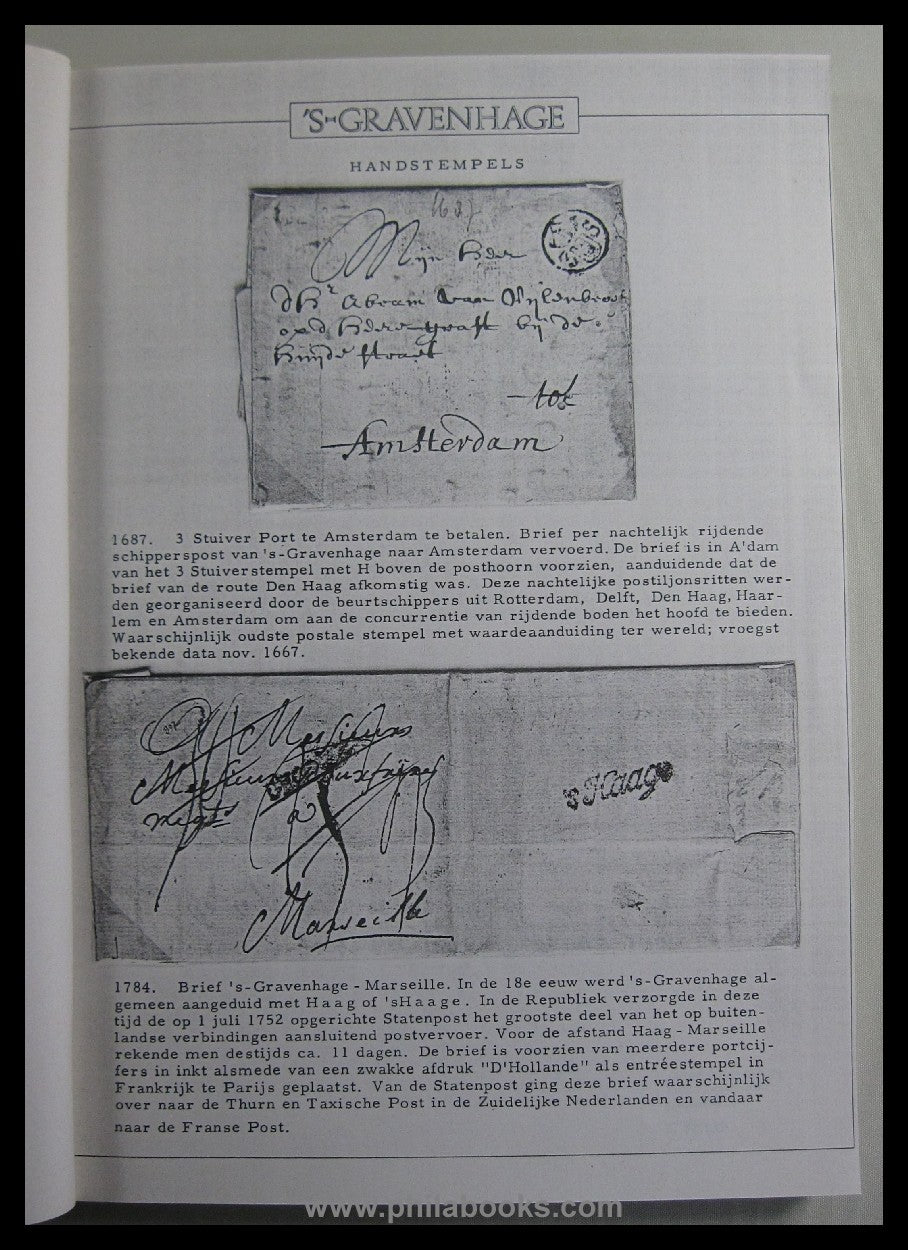 'S-GRAVENHAGE
HANDSTEMPELS
1687
Mijn Heer
dHr Abram van
opd Heere graft bij de
straet
tot
Amsterdam
1687. 3 Stuiver Port te Amsterdam te betalen. Brief per nachtelijk rijdende
schipperspost van 's-Gravenhage naar Amsterdam vervoerd. De brief is in A'dam
van het 3 Stuiverstempel met H boven de posthoorn voorzien, aanduidende dat de
brief van de route Den Haag afkomstig was. Deze nachtelijke postiljonsritten wer-
den georganiseerd door de beurtschippers uit Rotterdam, Delft, Den Haag, Haar-
lem en Amsterdam om aan de concurrentie van rijdende boden het hoofd te bieden.
Waarschijnlijk oudste postale stempel met waardeaanduiding ter wereld; vroegst
bekende data nov. 1667.
Messieurs
Messieurs
à
Marseille
'sHaage
1784. Brief 's-Gravenhage - Marseille. In de 18e eeuw werd 's-Gravenhage al-
gemeen aangeduid met Haag of 'sHaage. In de Republiek verzorgde in deze
tijd de op 1 juli 1752 opgerichte Statenpost het grootste deel van het op buiten-
landse verbindingen aansluitend postvervoer. Voor de afstand Haag - Marseille
rekende men destijds ca. 11 dagen. De brief is voorzien van meerdere portcij-
fers in inkt alsmede van een zwakke afdruk "D'Hollande" als entréestempel in
Frankrijk te Parijs geplaatst. Van de Statenpost ging deze brief waarschijnlijk
over naar de Thurn en Taxische Post in de Zuidelijke Nederlanden en vandaar
naar de Franse Post.
www.philabooks.com